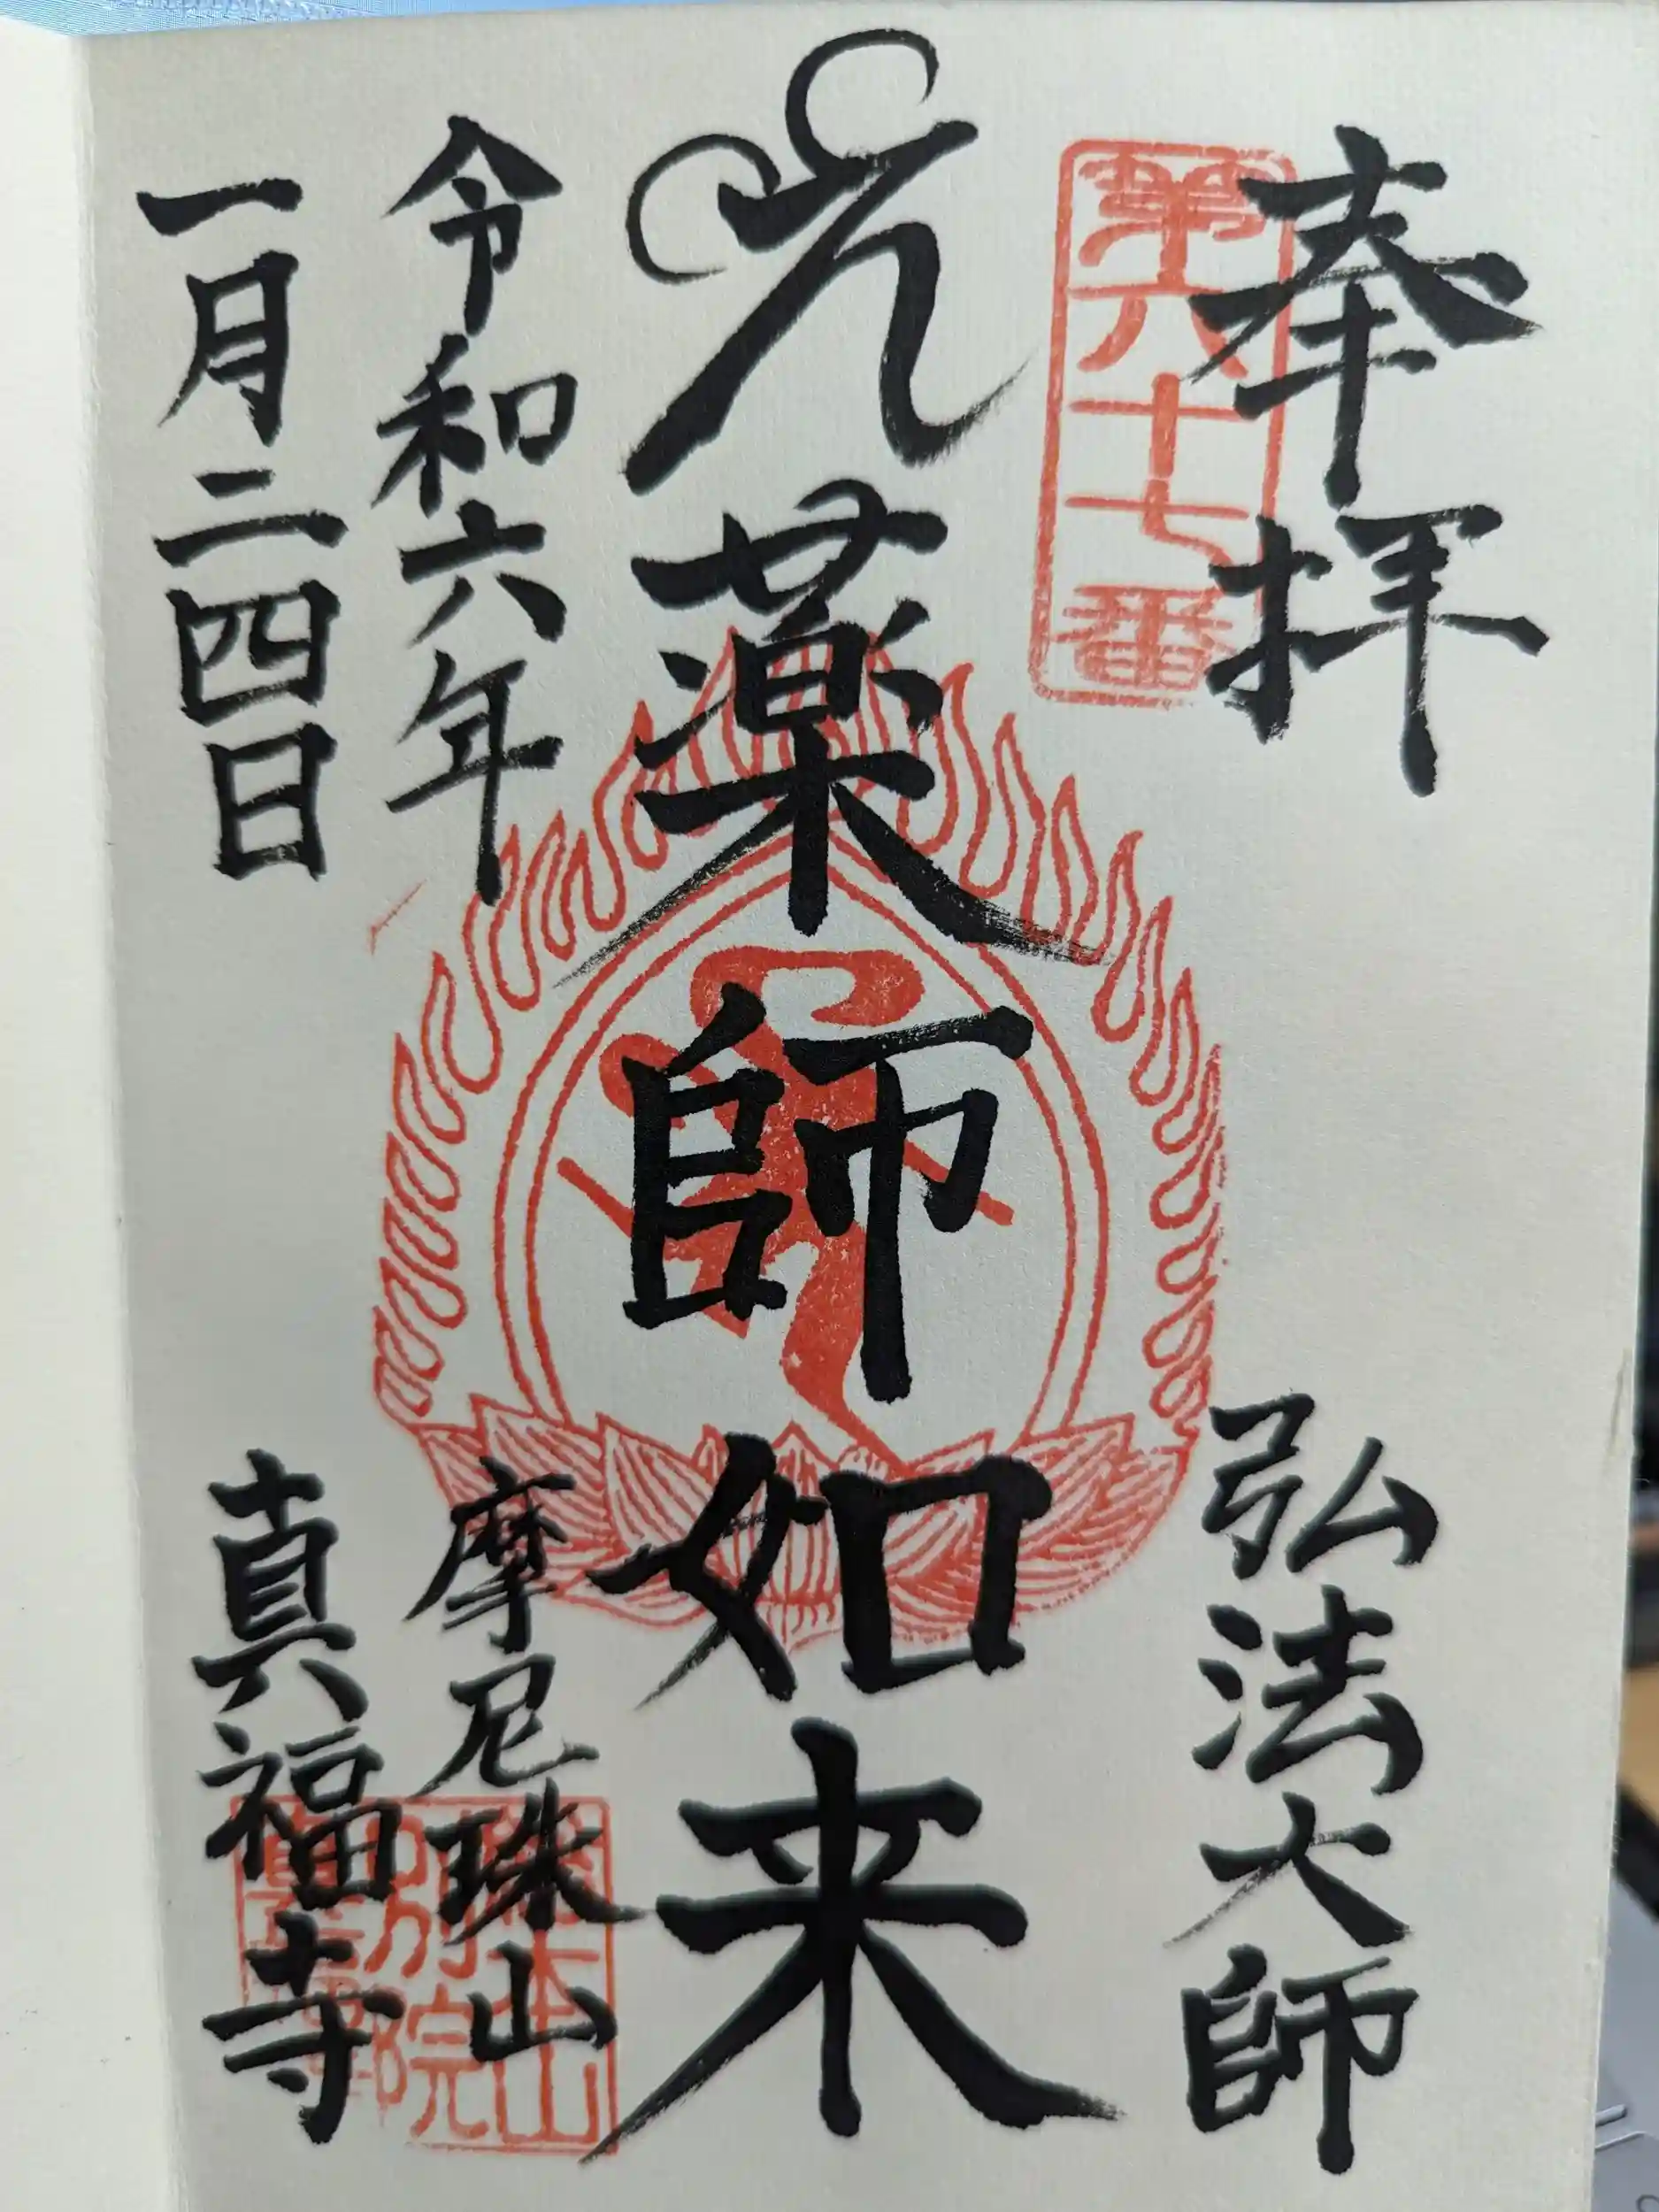 奉拝
第六十七番
弘法大師
薬師如来
令和六年
一月二四日
摩尼珠山
真福寺